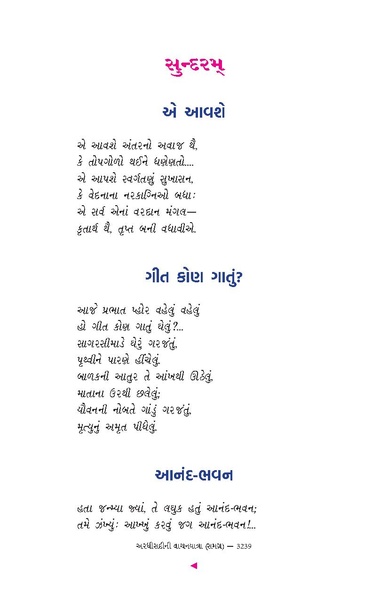 સુન્દરમ્
એ આવશે
એ આવશે અંતરનો અવાજ થૈ,
કે તોપગોળો થઈને ધણેણતો....
એ આપશે સ્વર્ગતણું સુખાસન,
કે વેદનાના નરકાગ્નિઓ બધાઃ
એ સર્વ એનાં વરદાન મંગલ—
કૃતાર્થ થૈ, તૃપ્ત બની વધાવીએ.
ગીત કોણ ગાતું?
આજે પ્રભાત પ્હોર વહેલું વહેલું
હો ગીત કોણ ગાતું ઘેલું?...
સાગરસીમાડે ઘેરું ગરજંતું,
પૃથ્વીને પારણે હીંચેલું.
બાળકની આતુર તે આંખથી ઊઠેલું,
માતાના ઉરથી છલેલું;
યૌવનની નોબતે ગાંડું ગરજંતું,
મૃત્યુનું અમૃત પીધેલું.
આનંદ-ભવન
હતા જન્મ્યા જ્વાં, તે લઘુક હતું આનંદ-ભવન;
તમે ઝંખ્યુંઃ આખ્ખું કરવું જગ આનંદ-ભવન!...
અરધીસદીની વાચનયાત્રા (સમગ્ર) — 3239